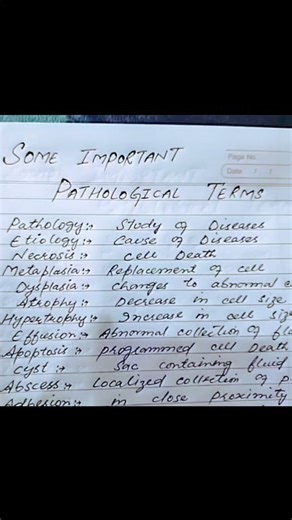 SOME IMPORTANT
Page No.
Date / /
PATHOLOGICAL TERMS
Pathology:→ Study of Diseases
Etiology:→ Cause of Diseases
Necrosis:→ Cell Death
Metaplasia:→ Replacement of cell
Dysplasia:→ Changes to abnormal
Atrophy:→ Decrease in cell size
Hypertrophy:→ Increase in cell
Effusion:→ Abnormal collection of
Apoptosis:→ programmed cell Death
cyst:→ Sac containing fluid
Abscess:→ Localized collection of
Adhesion:→ in close proximity